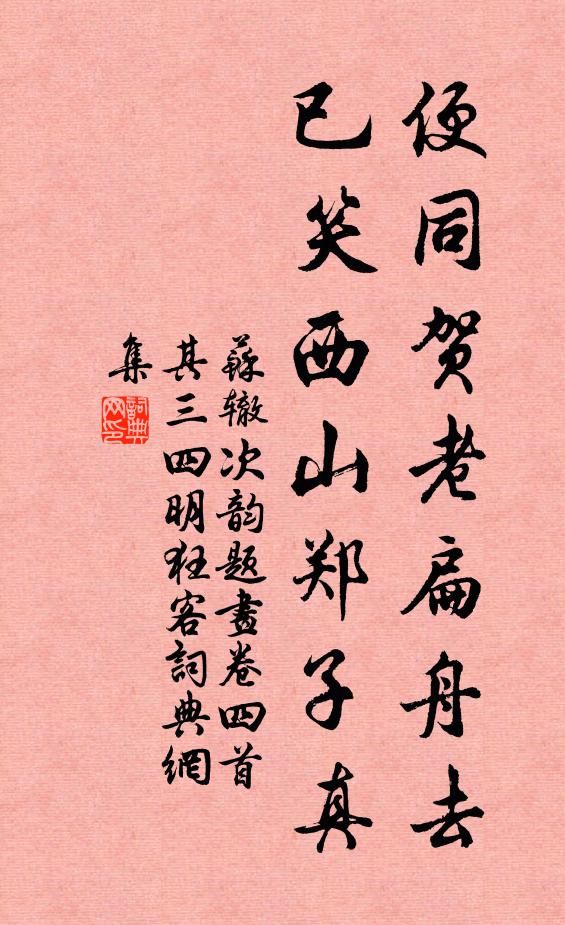 便同贺老扁舟去
已笑西山郑子真
蘇辙次韵题畫卷四首
其三四明狂客詞典網
集
詞典
网印